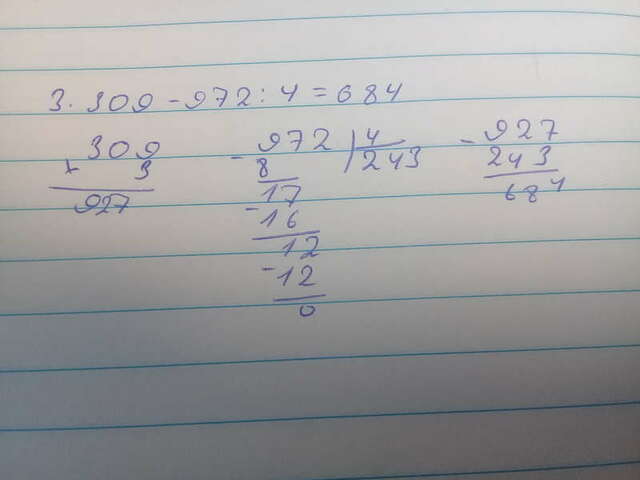 3·309-972:4=684
×309
3
927
-972|4
8 243
17
-16
12
-12
0
-927
243
684